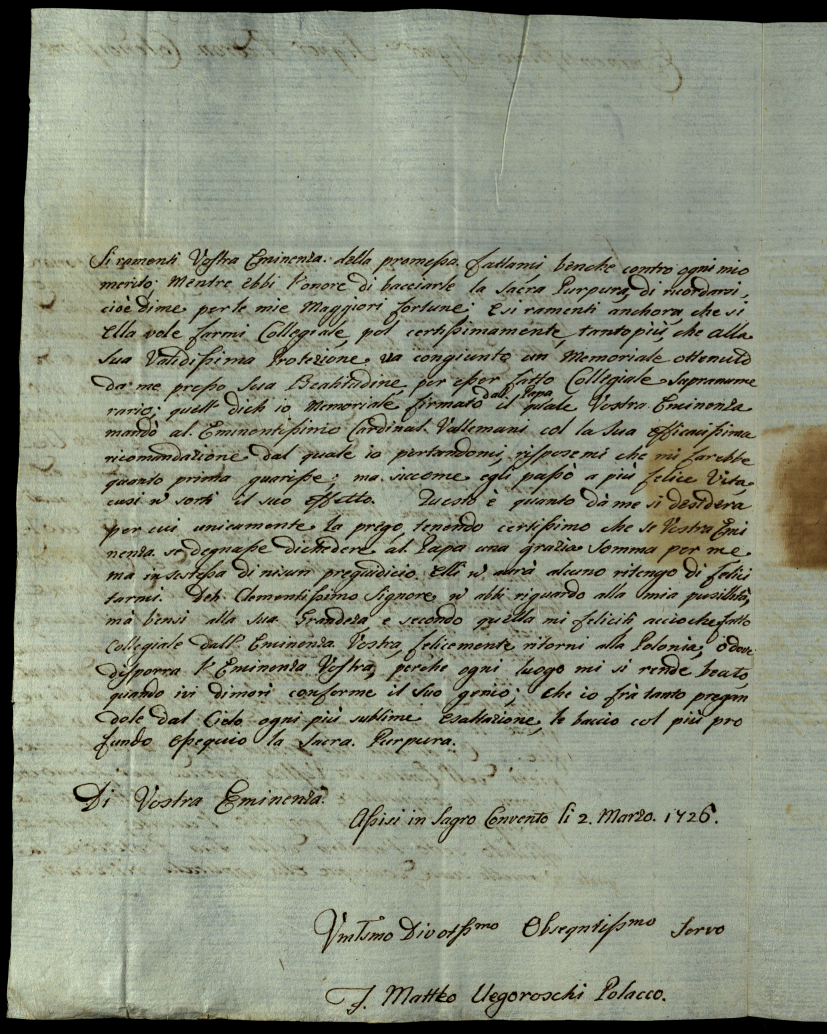 Si ramenti Vostra Eminenza della promessa fattami benche contro ogni mio
merito; Mentre ebbi l'onore di bacciarle la Sacra Purpura, di ricordarsi,
cioè di me per le mie Maggiori fortune; e si ramenti anchora, che si
Ella vole farmi Collegiale, pol certissimamente, tanto più, che alla
Sua Validissima Protezione, va congiunto un Memoriale ottenuto
da me presso Sua Beatitudine, per esser fatto Collegiale Sopranume
rario; quell dich io Memoriale firmato dall Papa il quale Vostra Eminenza
mandò al Eminentissimo Cardinal Vallemani col la Sua efficacissima
ricomandazione dal quale io portandomi, rispose mi che mi farebbe
quanto prima guarisse; ma siccome egli passò a più felice Vita,
cusi n̄ sortì il suo effetto. Questo è quanto da me si desidera
per cui unicamente La prego, tenendo certissimo che se Vostra Emi
nenza se degnasse di chiedere al Papa una grazia Somma per me
ma in se stessa di nisun pregiudicio, Elli n̄ avrà alcuno ritengo di felici
tarmi. Deh Clementissimo Signore n̄ abbi riguardo alla mia pusillità,
mà bensi alla Sua Grandeza, e secondo quella mi feliciti, accioche fatto
Collegiale dall' Eminenza Vostra, felicemente ritorni alla Polonia, ò dove
disporra l'Eminenza Vostra, perche ogni luogo mi si rende beato,
quando ivi dimori conforme il Suo genio; Che io frà tanto pregan
dole dal Cielo ogni più sublime Esaltazione, le baccio col più pro
fundo Ossequio la Sacra Purpura.
Di Vostra Eminenza
Assisi in Sagro Convento li 2. Marzo. 1726.
Umlsmo Divotssmo Obseqntissmo Servo
F. Matteo Uegoroschi Polacco.